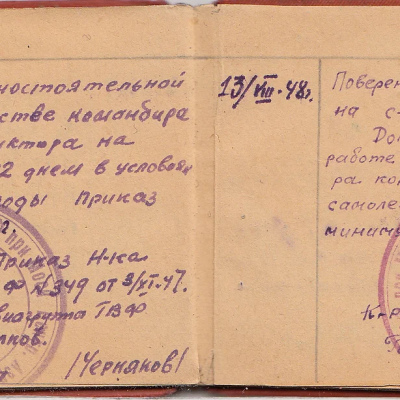 ностоятельной
стве командира
уктора на
2 днем в условия
роды Приказ
Приказ Н-ка
Ф №349 от 3/XI-47.
виагрупа ГВФ
лков.
/Черняков/
13/VIII-48г.
Поверен
на с-
Доп
работе
ра кор
самоле
миниму
К-р